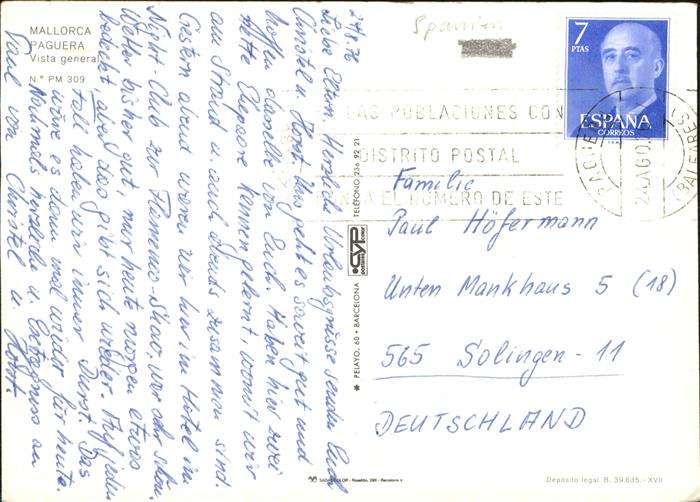 MALLORCA
PAGUERA
Vista general
N.° PM 309
24.8.76
Liebe Eltern. Herzliche Urlaubsgrüsse senden Euch
Christel u. Horst. Uns geht es soweit gut und
hoffen dasselbe von Euch. Haben hier zwei
nette Ehepaare kennen gelernt, womit wir
am Strand u. auch abends zusammen sind
Gestern abend waren wir hier im Hotel im
Night-Club zur Flamenco-Show, war sehr schön.
Wetter bisher gut, nur heute morgen etwas
bedeckt, aber das gibt sich wieder. Auf jeden
Fall haben wir immer Durst. Das
wäre es dann mal wieder für heute.
Nochmals herzliche u. Extragruss an
Paul von Christel u. Horst.
Spanien
7
PTAS
ESPAÑA
CORREOS
LAS POBLACIONES CON
DISTRITO POSTAL
EL NUMERO DE ESTE
PAGUERA
24 AGO
(BALEARES)
Familie
Paul Höfermann
Unten Mankhaus 5 (18)
565 Solingen-11
DEUTSCHLAND
PELAYO, 60 • BARCELONA
CYP
TELEFONO 236 92 21
Depósito legal B. 39.635.-XVII